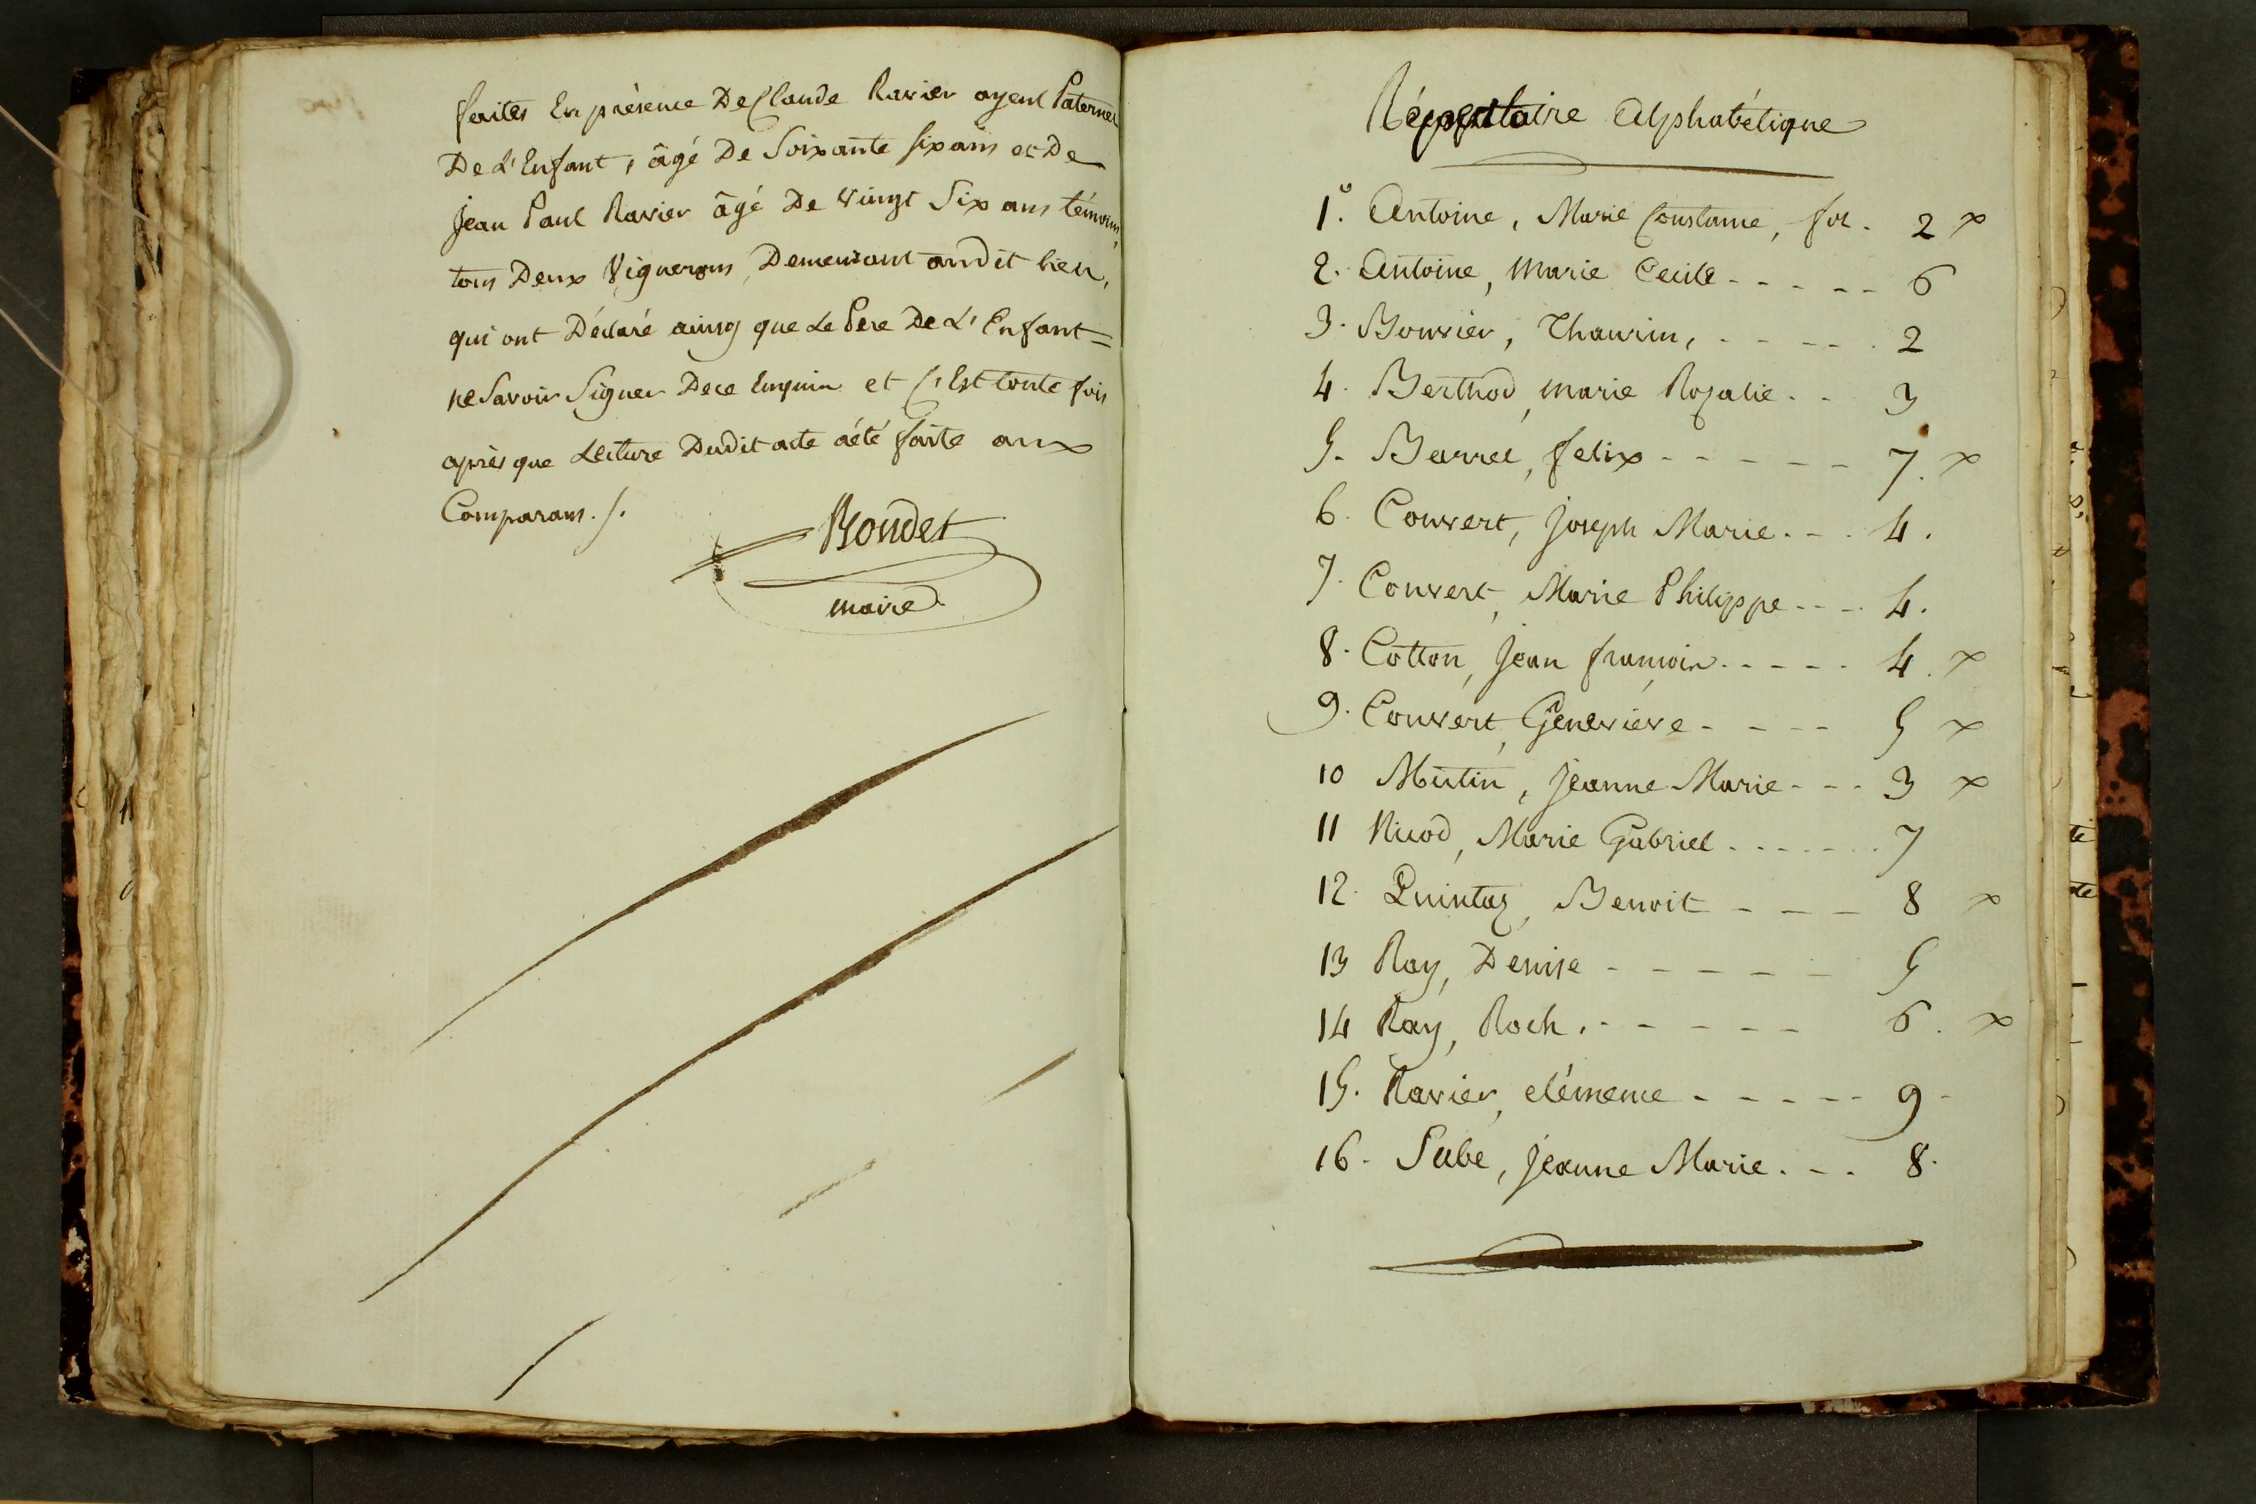 faites En présence De Claude Ravier ayeul Paternel
De L'Enfant, âgé De Soixante six ans et De
Jean Paul Ravier âgé De Vingt Six ans témoins,
tous Deux Vignerons, Demeurant audit lieu,
qui ont Déclaré ainsy que Le Pere De L'Enfant =
ne Savoir Signer Dece Enquis et C'Est toute fois
après que Lecture Dudit acte aété faite aux
Comparans ./.
Bondet
maire
Répertoire Alphabétique
1.º Antoine, Marie Constance, fol. 2 x
2. Antoine, Marie Cecile - - - - - 6
3. Bouvier, Thaurin, - - - - - 2
4. Berthod, Marie Rosalie - - 3
5. Barrel, felix - - - - - - 7. x
6. Convert, Joseph Marie - - - 4.
7. Convert, Marie Philippe - - - 4.
8. Cotton, Jean francois - - - - - 4. x
9. Convert, Genevieve - - - - 5 x
10 Mutin, Jeanne Marie - - - 3 x
11 Nicod, Marie Gabriel - - - - - - 7
12. Quintaz, Benoit - - - 8 x
13 Ray, Denise - - - - - - 5
14 Ray, Roch, - - - - - - 6. x
15. Ravier, clémence - - - - - 9 -
16. Sube, Jeanne Marie - - - 8.